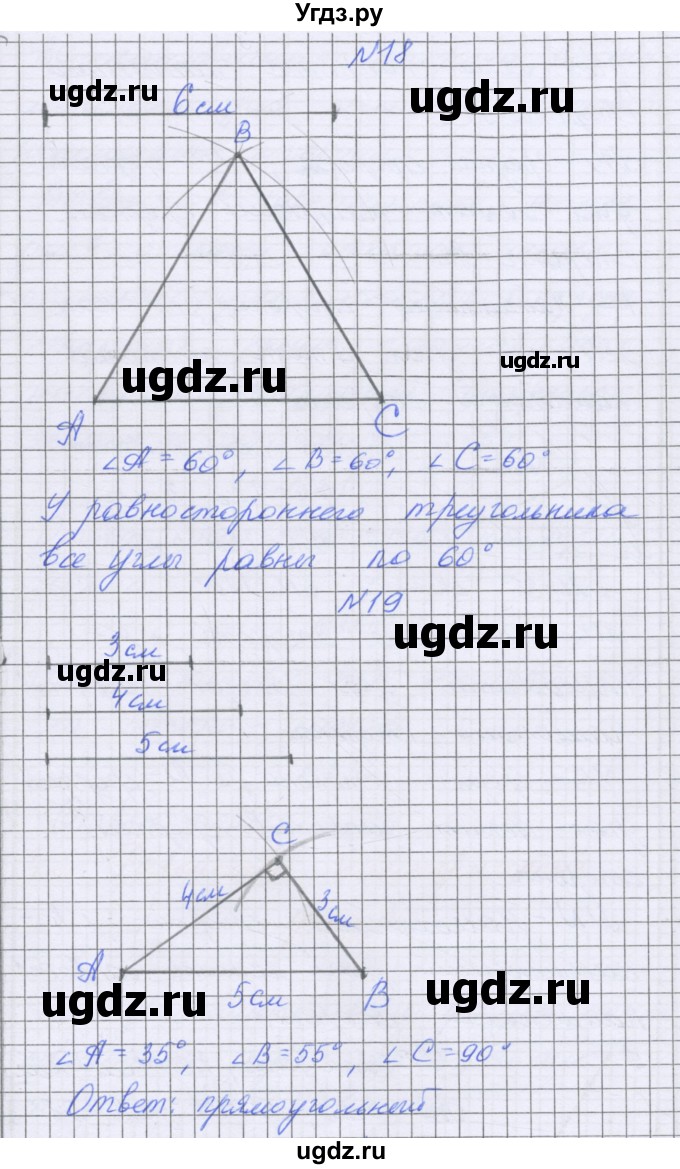 Угдз.ру
№18
ugdz.ru
ugdz.ru
6 см
B
ugdz.ru
ugdz.ru
A
C
∠A = 60°, ∠B = 60°, ∠C = 60°
У равностороннего треугольника
все углы равны по 60°
№19
ugdz.ru
3 см
ugdz.ru
4 см
5 см
C
4 см
3 см
A
5 см
B
ugdz.ru
ugdz.ru
∠A = 35°, ∠B = 55°, ∠C = 90°
Ответ: прямоугольный
ugdz.ru